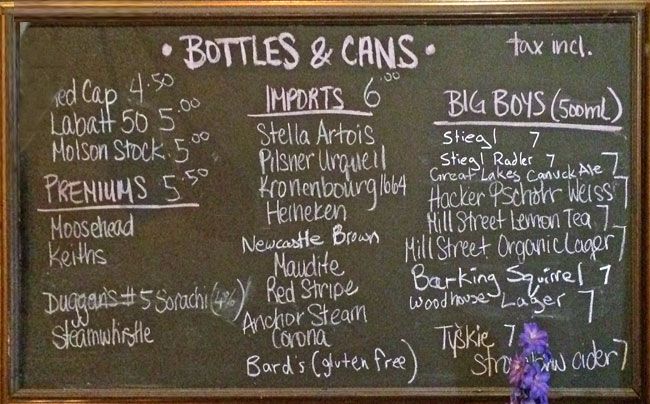 • BOTTLES & CANS •
tax incl.
Cap 4.50
Labatt 50 5.00
Molson Stock 5.00
PREMIUMS 5.50
Moosehead
Keiths
Duggan's #5 Sorachi
Steamwhistle
IMPORTS 6.00
Stella Artois
Pilsner Urquell
Kronenbourg 1664
Heineken
Newcastle Brown
Maudite
Red Stripe
Anchor Steam
Corona
Bard's (gluten free)
BIG BOYS (500mL)
Stiegl 7
Stiegl Radler 7
Great Lakes Canuck Ale 7
Hacker Pschorr Weiss 7
Mill Street Lemon Tea 7
Mill Street Organic Lager 7
Barking Squirrel 7
Woodhouse Lager 7
Tyskie 7
cider 7